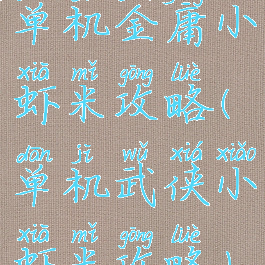 单机金庸小
xiā mǐ gōng lüè
虾米攻略(
dān jī wǔ xiá xiǎo
单机武侠小
xiā mǐ gōng lüè
虾米攻略)